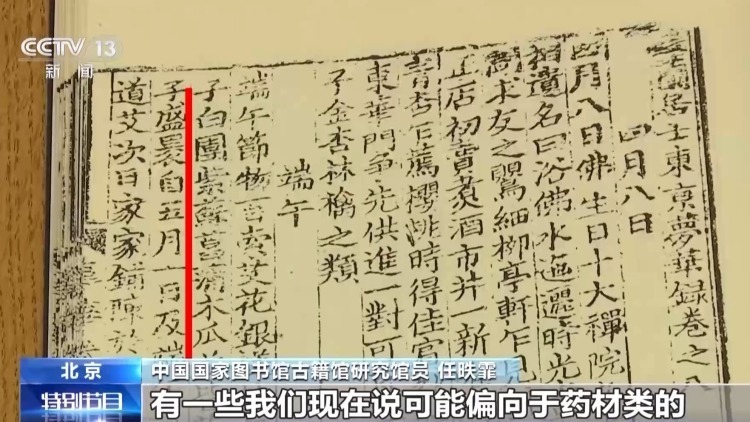 CCTV 13
新闻
居士東京夢華錄卷之八
四月八日
四月八日佛生日十大禪院
相遺名曰浴佛水迤邐時光
求友之鸎細柳亭軒乍見
正店初賣煮酒市井一新
青杏乍薦櫻桃時得佳
東華門爭先供進一對可
子金杏林檎之類
端午
端午節物百索艾花銀
子白團紫蘇菖蒲木瓜
子盛裹自五月一日及端
道艾次日家家鋪陳於
北京
中国国家图书馆古籍馆研究馆员 任昳霏
特别节目
有一些我们现在说可能偏向于药材类的